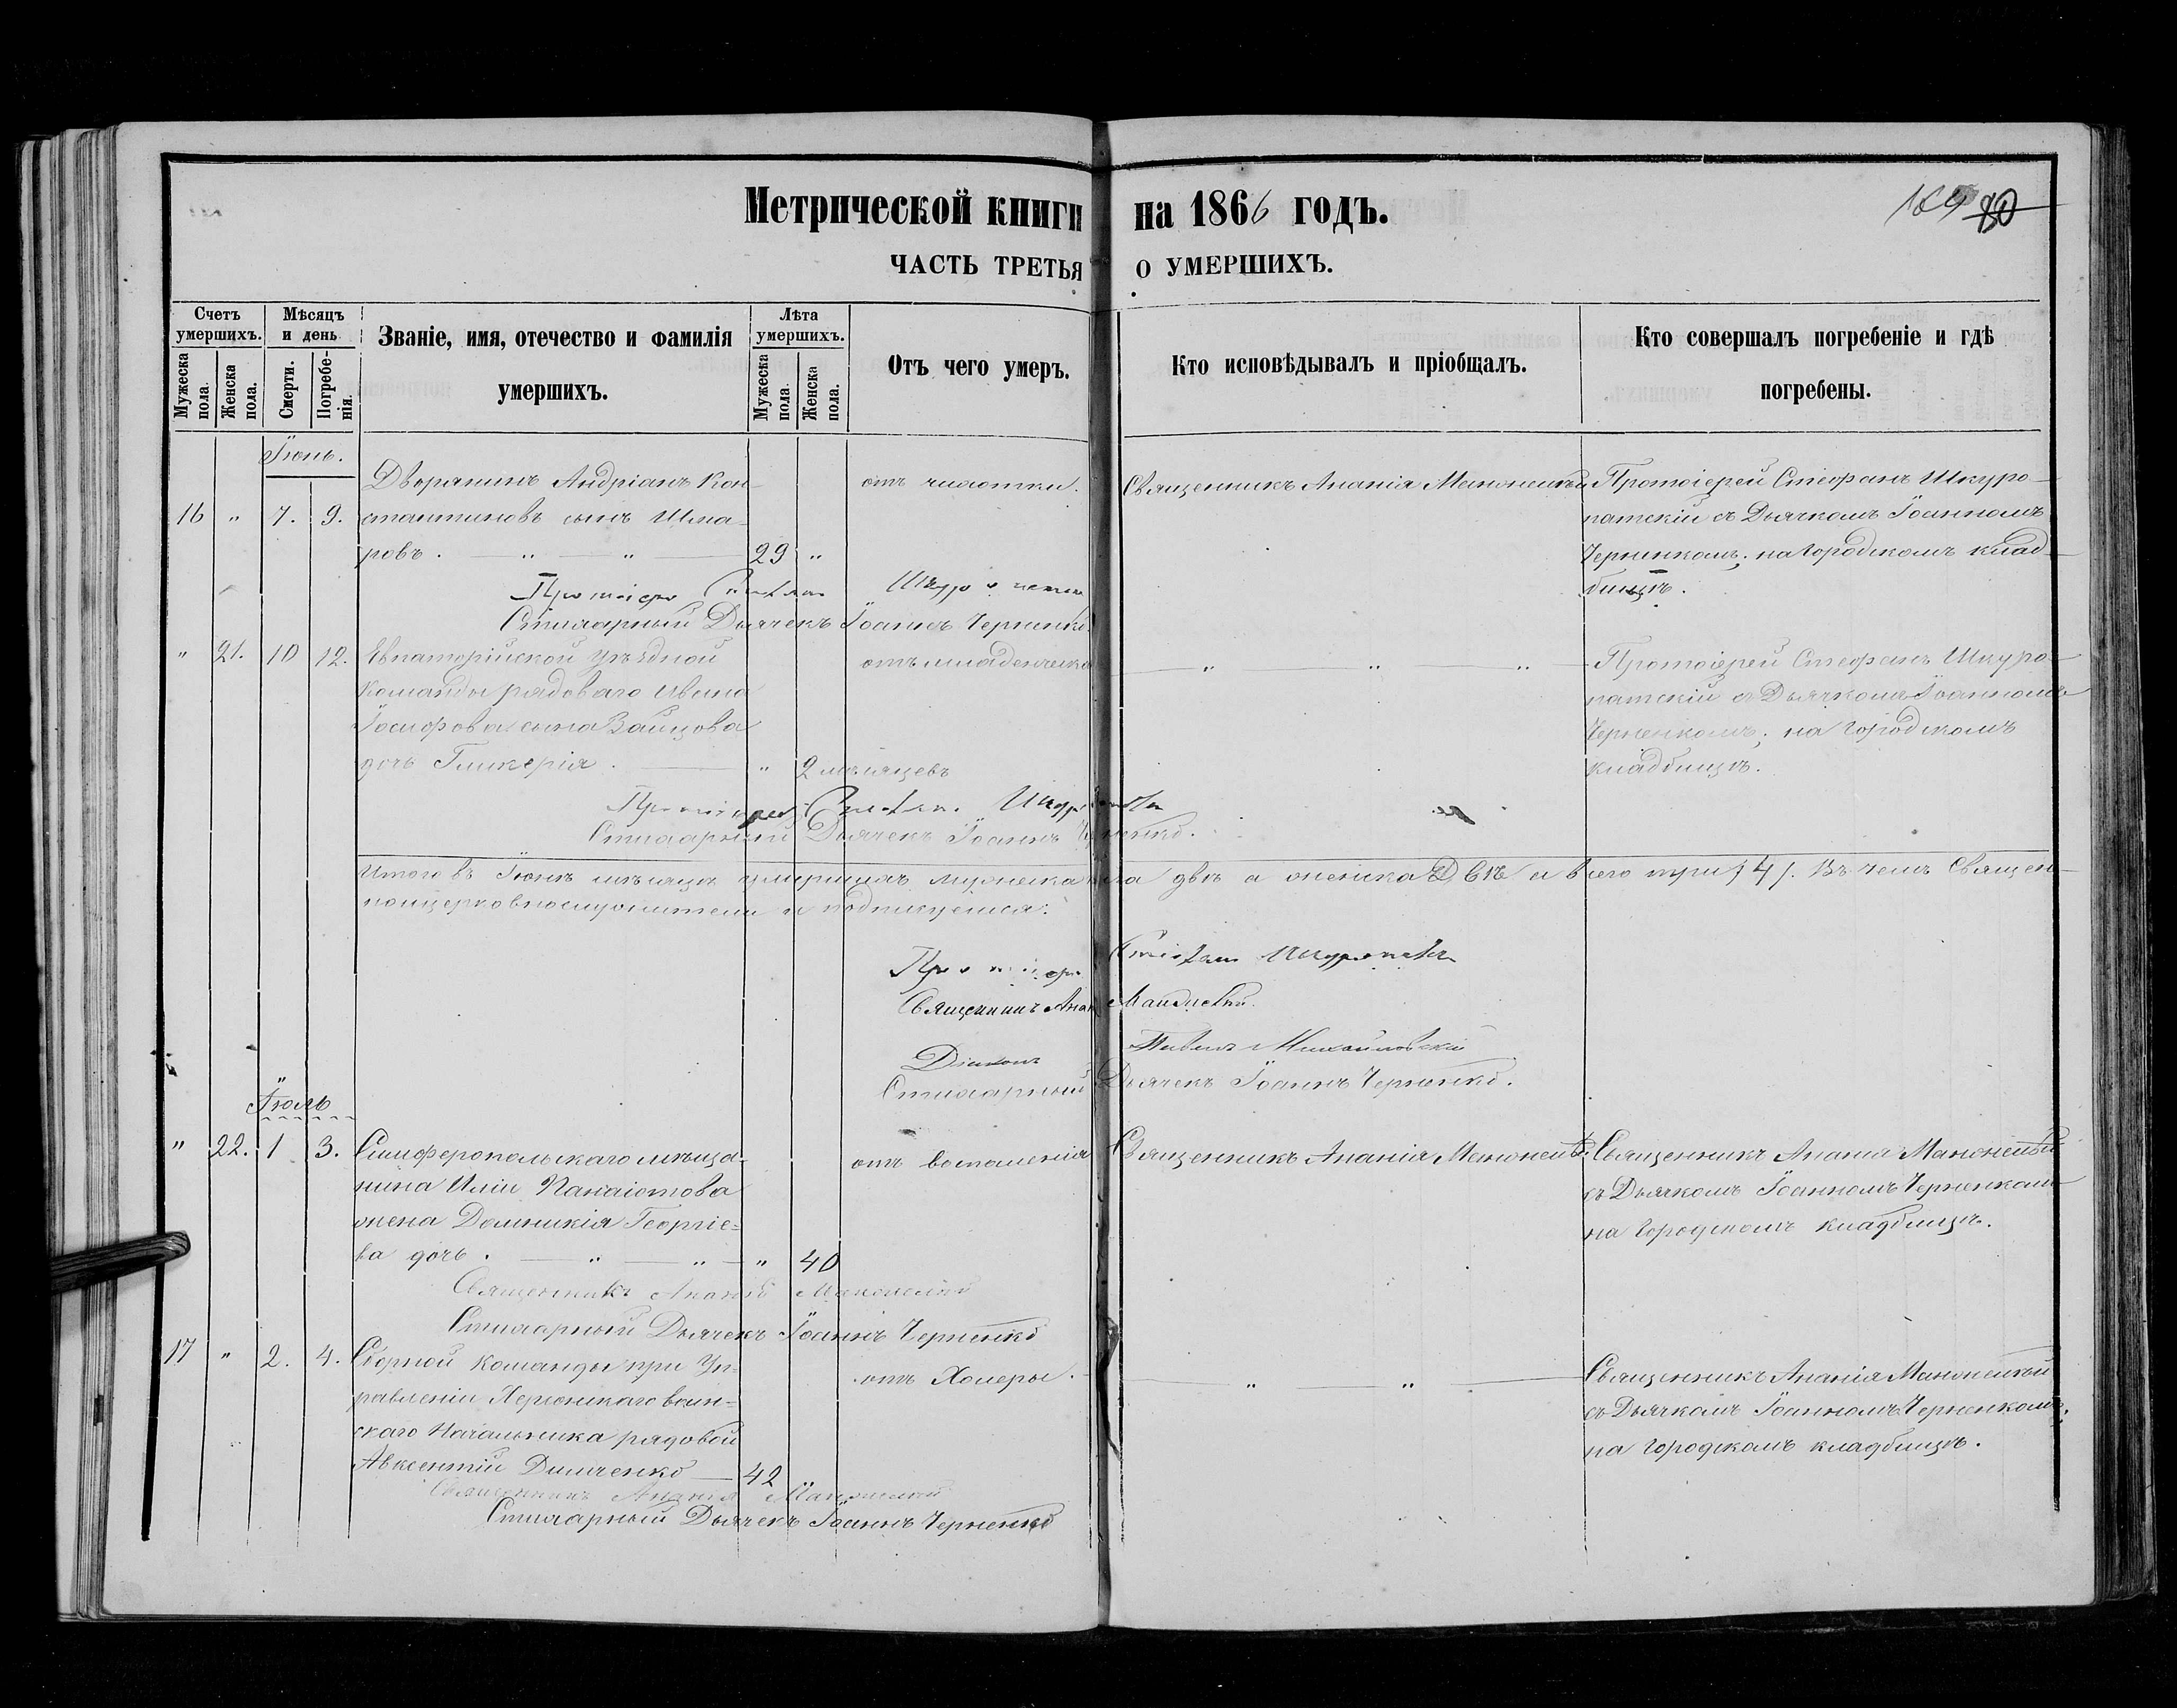 Метрической книги на 1866 годъ.
169 80
ЧАСТЬ ТРЕТЬЯ О УМЕРШИХЪ.
Счетъ умершихъ.
Мужеска пола.
Женска пола.
Мѣсяцъ и день
Смерти.
Погребенія.
Званіе, имя, отечество и фамилія умершихъ.
Лѣта умершихъ.
Мужеска пола.
Женска пола.
Отъ чего умеръ.
Кто исповѣдывалъ и пріобщалъ.
Кто совершалъ погребеніе и гдѣ погребены.
Іюнь.
16 " 7. 9.
Дворянинъ Андріанъ Кон-
стантиновъ сынъ
ровъ. " " 29 "
отъ чахотки.
Священникъ Ананія
Протоіерей Стефанъ Шкуро-
патскій съ Дьячкомъ Іоанномъ
Черненкомъ; на Городскомъ клад-
бищѣ.
Протоіерей Стефанъ
Стихарный Дьячекъ Іоаннъ Черненко.
" 21. 10 12.
Евпаторійской уѣздной
Команды рядоваго Ивана
Іосифова сына Зайцова
дочь Гликерія. " 2 мѣсяцевъ
отъ младенческа
" " "
Протоіерей Стефанъ Шкуро-
патскій съ Дьячкомъ Іоанномъ
Черненкомъ; на Городскомъ
кладбищѣ.
Протоіерей Стефанъ
Стихарный Дьячекъ Іоаннъ Черненко.
Итого въ Іюнѣ мѣсяцѣ умершихъ мужеска пола два а женска двѣ а всего три /4/. Въ чемъ Священ-
ноцерковнослужители и подписуемся:
Протоіерей Стефанъ
Священникъ Ананія
Діаконъ Павелъ Михайловскій
Стихарный Дьячекъ Іоаннъ Черненко.
Іюль
" 22. 1 3.
Симферопольскаго мѣща-
нина Иліи Панаіотова
жена Домникія Георгіе-
ва дочь. " " " 40
отъ воспаленія
Священникъ Ананія
Священникъ Ананія
съ Дьячкомъ Іоанномъ Черненкомъ
на Городскомъ кладбищѣ.
Священникъ Ананія
Стихарный Дьячекъ Іоаннъ Черненко
17 " 2. 4.
Сборной команды при Уп-
равленіи Херсонскаго воин-
скаго Начальника рядовой
Авксентій 42
отъ Холеры.
" "
Священникъ Ананія
съ Дьячкомъ Іоанномъ Черненкомъ;
на Городскомъ кладбищѣ.
Священникъ Ананія
Стихарный Дьячекъ Іоаннъ Черненко